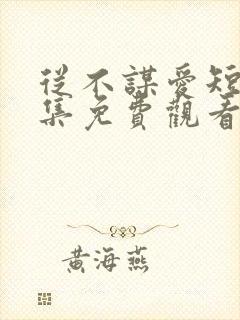 從不謀愛短
集免費觀看
黃海燕